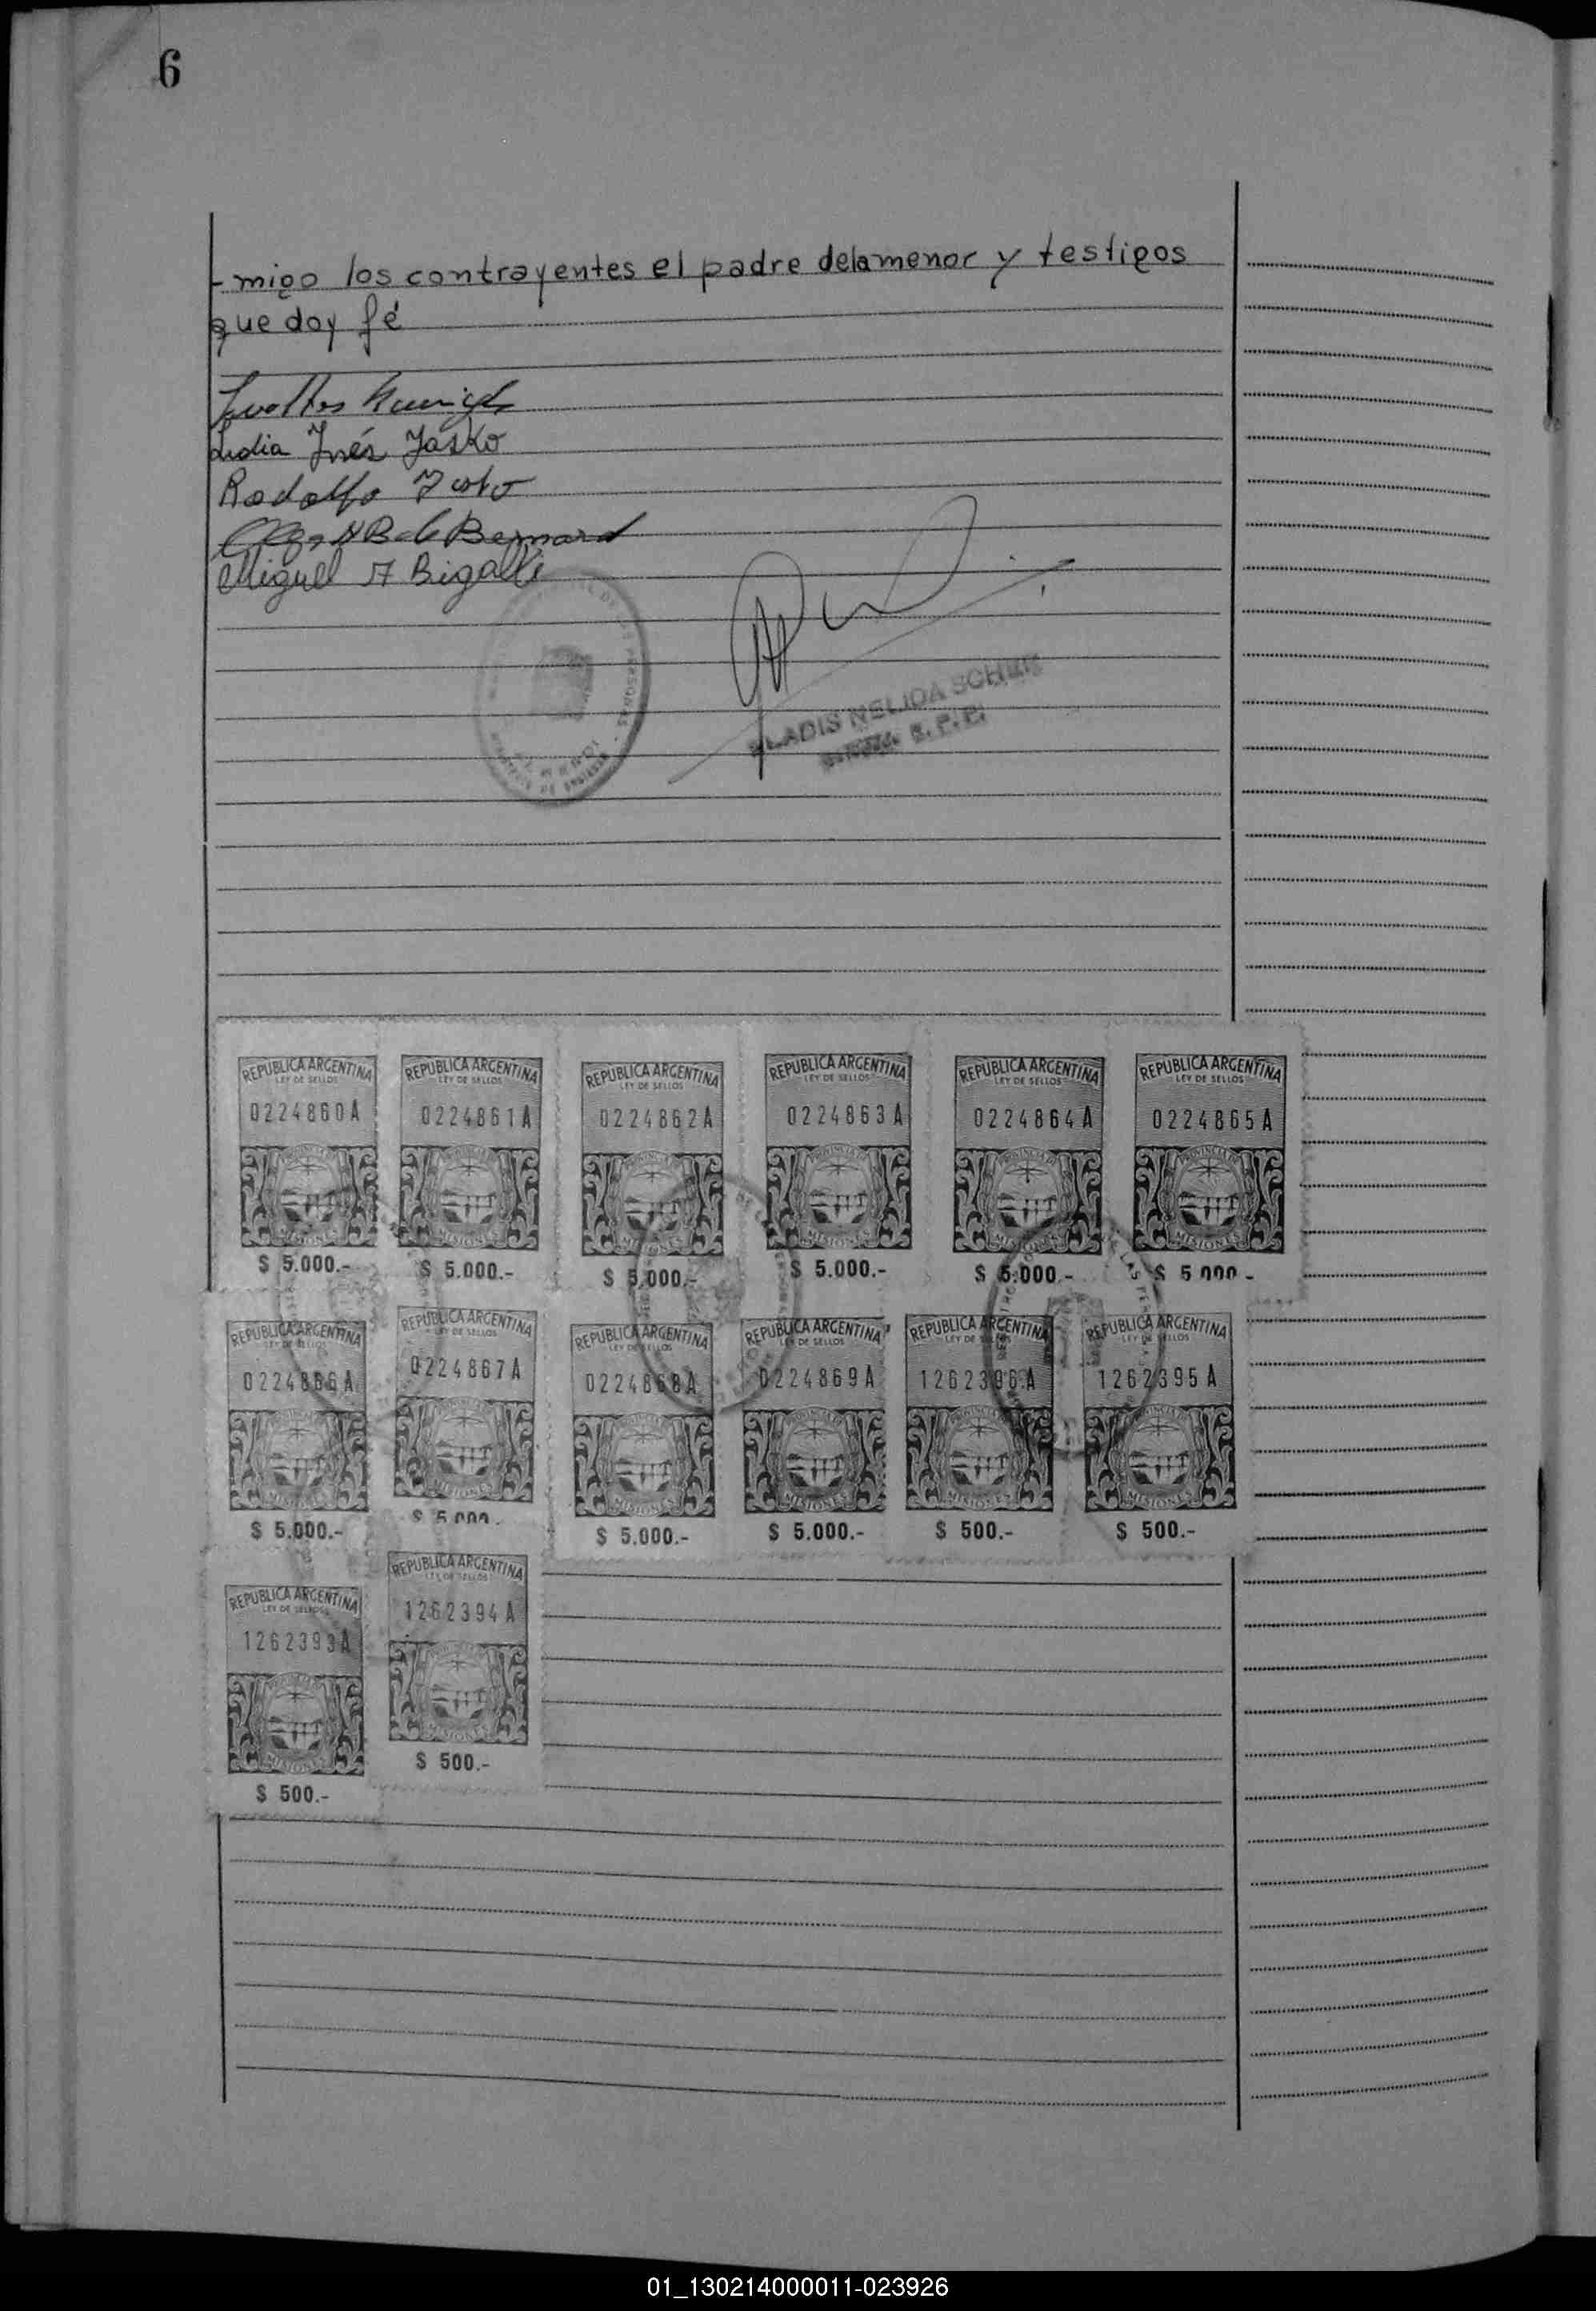 6
-migo los contrayentes el padre delamenor y testigos
que doy fé
Lidia Inés Jasko
Rodolfo
Bernard
Miguel A Bigalli
NELIDA
REPUBLICA ARGENTINA REPUBLICA ARGENTINA REPUBLICA ARGENTINA REPUBLICA ARGENTINA REPUBLICA ARGENTINA REPUBLICA ARGENTINA
LEY DE SELLOS LEY DE SELLOS LEY DE SELLOS LEY DE SELLOS LEY DE SELLOS LEY DE SELLOS
0224860A 0224861A 0224862A 0224863A 0224864A 0224865A
MISIONES MISIONES MISIONES MISIONES MISIONES MISIONES
$ 5.000.- $ 5.000.- $ 5.000.- $ 5.000.- $ 5.000.- $ 5.000.-
REPUBLICA ARGENTINA REPUBLICA ARGENTINA REPUBLICA ARGENTINA REPUBLICA ARGENTINA REPUBLICA ARGENTINA REPUBLICA ARGENTINA
LEY DE SELLOS LEY DE SELLOS LEY DE SELLOS LEY DE SELLOS LEY DE SELLOS LEY DE SELLOS
0224866A 0224867A 0224868A 0224869A 1262396A 1262395A
MISIONES MISIONES MISIONES MISIONES MISIONES MISIONES
$ 5.000.- $ 5.000.- $ 5.000.- $ 5.000.- $ 500.- $ 500.-
REPUBLICA ARGENTINA REPUBLICA ARGENTINA
LEY DE SELLOS LEY DE SELLOS
1262393A 1262394A
MISIONES MISIONES
$ 500.- $ 500.-
01_130214000011-023926